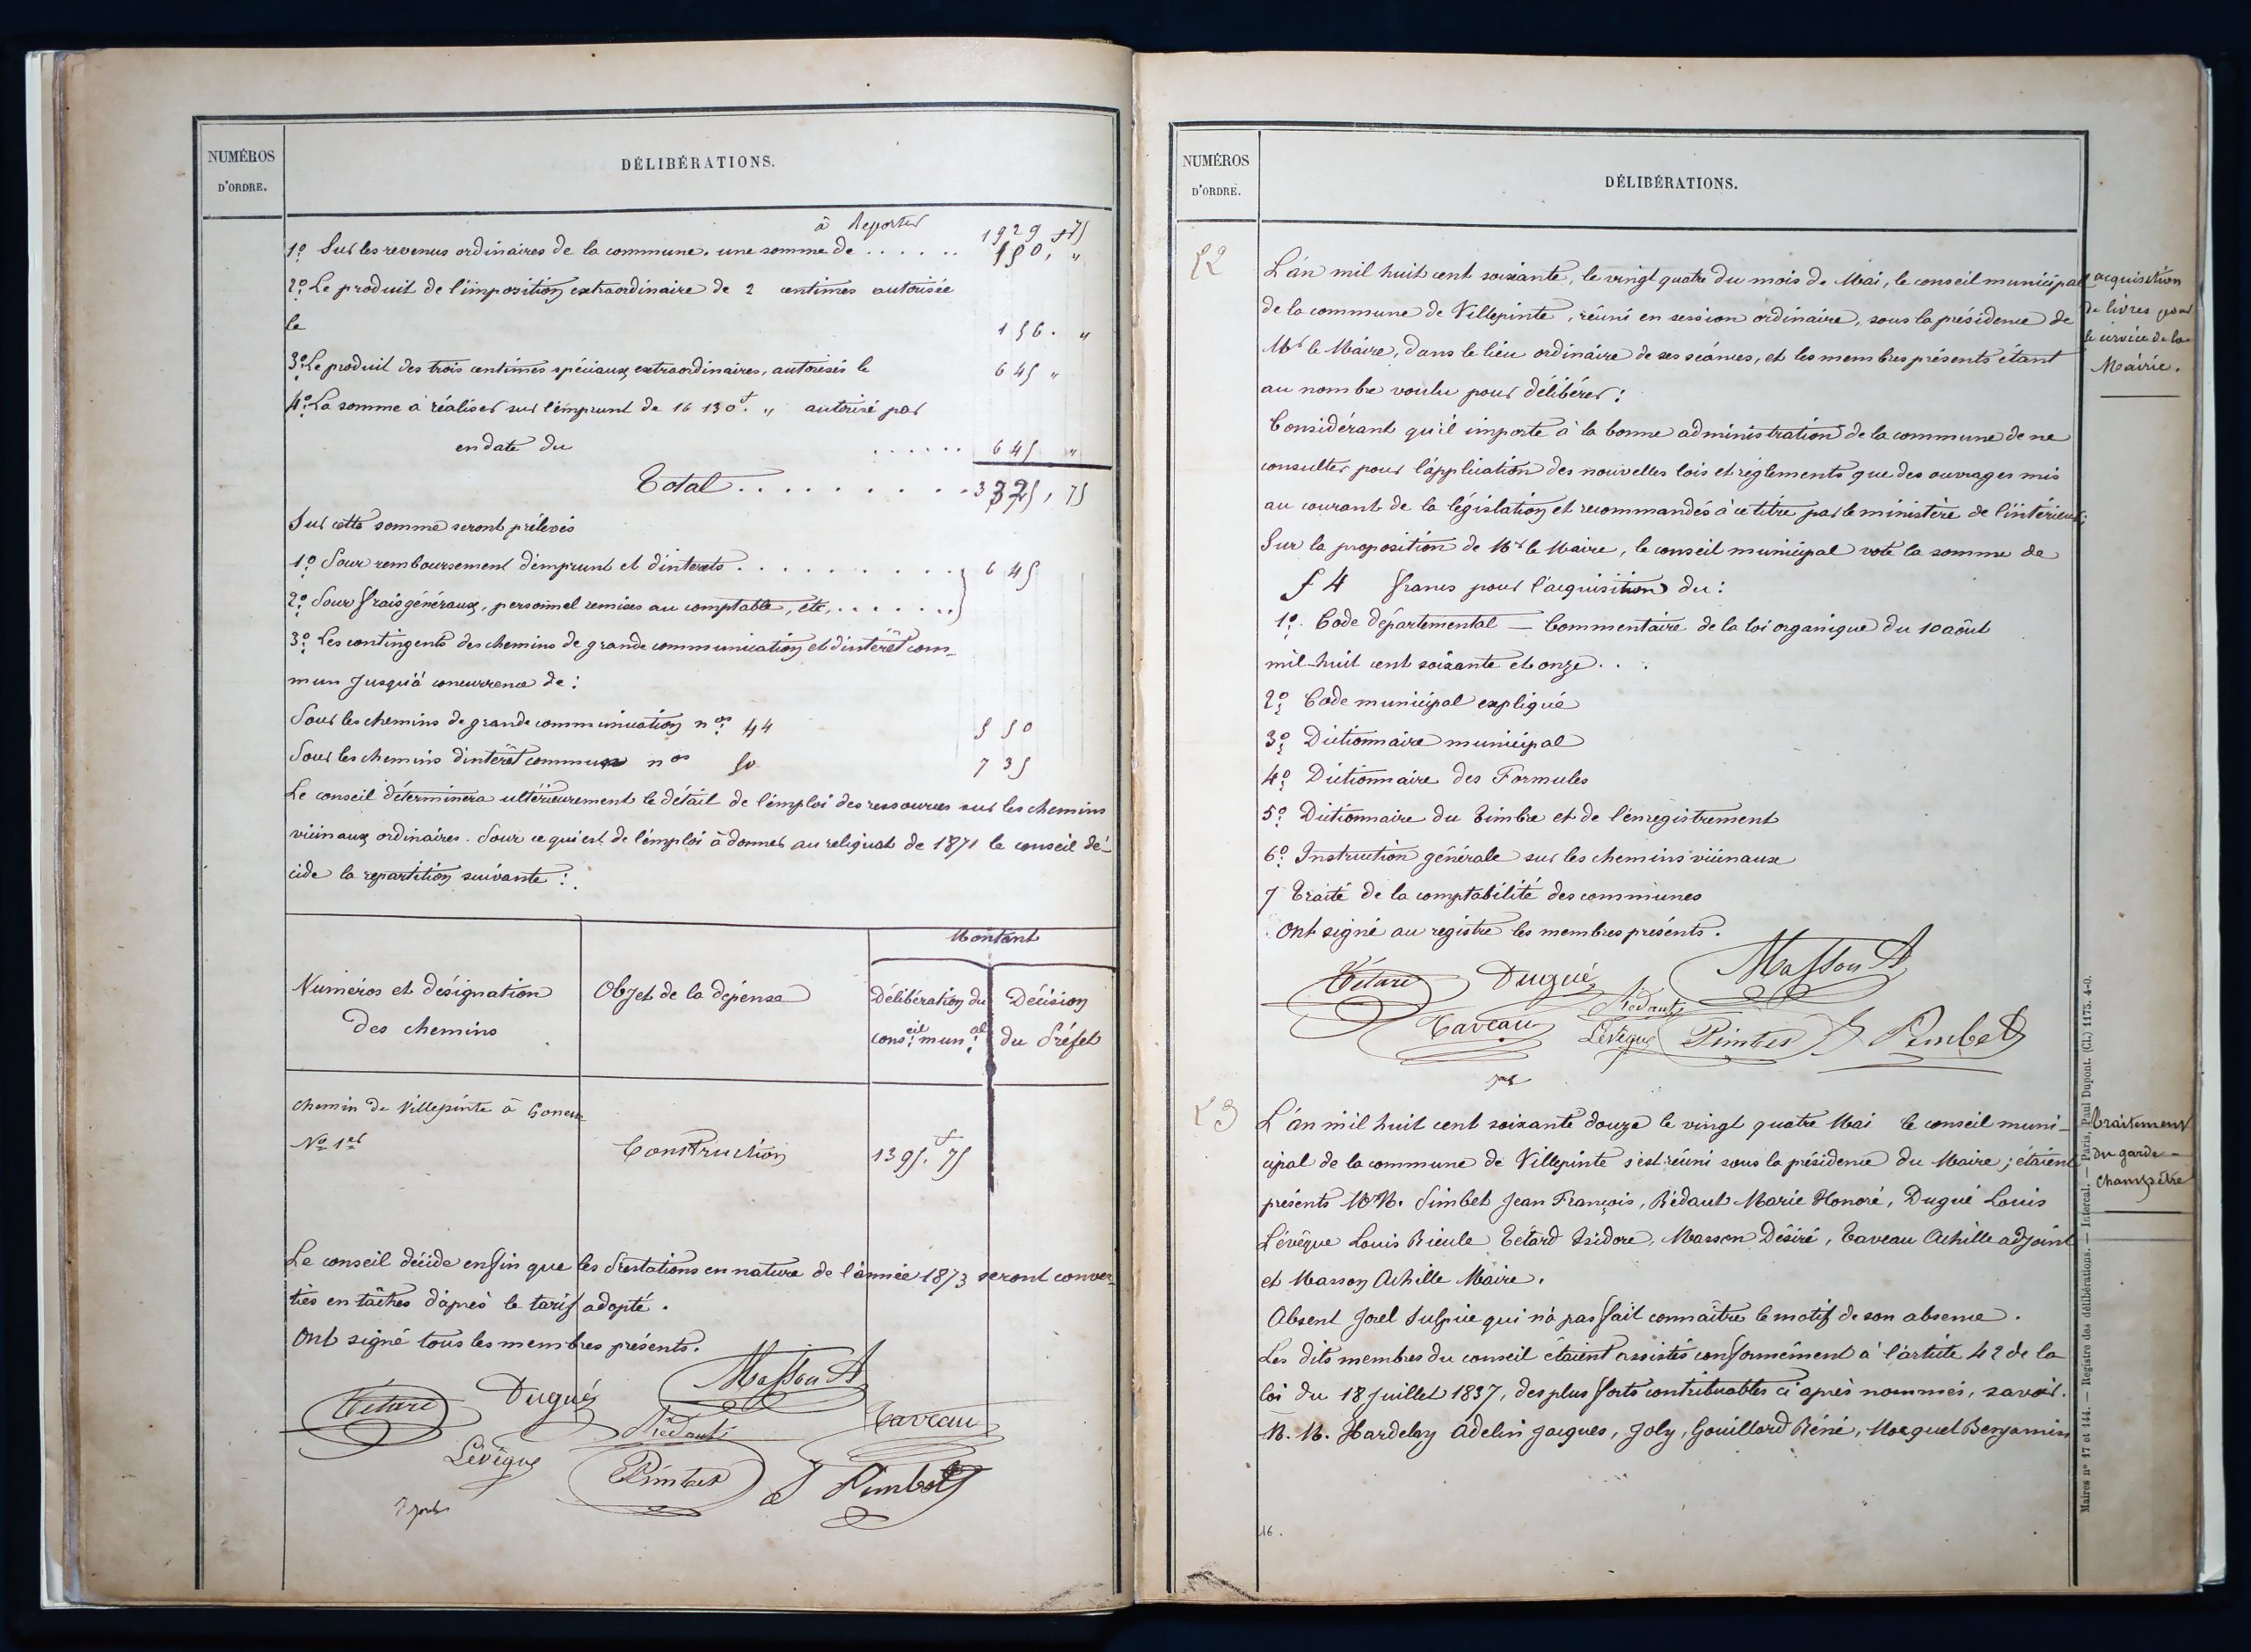 NUMÉROS
D'ORDRE.
DÉLIBÉRATIONS.
à Reporter 1929 f 75
1º Sur les revenus ordinaires de la commune, une somme de . . . . . . 150, "
2º Le produit de l'imposition extraordinaire de 2 centimes autorisée
le 156. "
3º Le produit des trois centimes spéciaux extraordinaires, autorisés le 645 "
4º La somme à réaliser sur l'emprunt de 16 130 f. " autorisé par
en date du . . . . . . 645 "
Total . . . . . . . . . . 3525, 75
Sur cette somme seront prélevés
1º Pour remboursement d'emprunt et d'interets . . . . . . . . . . 645
2º Pour frais généraux, personnel remises au comptable, etc, . . . . . .
3º Les contingents des chemins de grande communication et d'intérêt com-
mun jusqu'à concurrence de :
Pour les chemins de grande communication nos 44 550
Pour les chemins d'intérêt commun nos 50 735
Le conseil déterminera ultérieurement le détail de l'emploi des ressources sur les chemins
vicinaux ordinaires. Pour ce qui est de l'emploi à donner au reliquat de 1871 le conseil dé-
cide la repartition suivante :
Montant
Numéros et désignation
des chemins
Objet de la dépense
Délibération du
conseil munal
Décision
du Préfet
Chemin de Villepinte à Gonesse
No 1er
Construction
1395 f. 75
Le conseil décide enfin que les Prestations en nature de l'année 1873 seront conver-
ties en tâches d'après le tarif adopté.
Ont signé tous les membres présents.
Masson A
Tétard
Dugué
Rédaut
Taveau
Lévêque
Pimbet
J Pimbet
NUMÉROS
D'ORDRE.
DÉLIBÉRATIONS.
52
acquisition
de livres pour
le service de la
Mairie.
L'an mil huit cent soixante, le vingt quatre du mois de Mai, le conseil municipal
de la commune de Villepinte, réuni en session ordinaire, sous la présidence de
Mr le Maire, dans le lieu ordinaire de ses séances, et les membres présents étant
au nombre voulu pour délibérer :
Considérant qu'il importe à la bonne administration de la commune de ne
consulter pour l'application des nouvelles lois et règlements que des ouvrages mis
au courant de la législation et recommandés à ce titre par le ministère de l'intérieur ;
Sur la proposition de Mr le Maire, le conseil municipal vote la somme de
54 francs pour l'acquisition du :
1º Code départemental — Commentaire de la loi organique du 10 août
mil-huit cent soixante et onze . . .
2º Code municipal expliqué
3º Dictionnaire municipal
4º Dictionnaire des Formules
5º Dictionnaire du Timbre et de l'enregistrement
6º Instruction générale sur les chemins vicinaux
7 Traité de la comptabilité des communes
Ont signé au registre les membres présents.
Masson A
Tétard
Dugué
Rédaut
Taveau
Lévêque
Pimbet
J Pimbet
53
Traitement
du garde-
Champêtre
L'an mil huit cent soixante douze le vingt quatre Mai le conseil muni-
cipal de la commune de Villepinte s'est réuni sous la présidence du Maire ; étaient
présents M.M. Pimbet Jean François, Rédaut Marie Honoré, Dugué Louis
Lévêque Louis Bieule Tétard Isidore, Masson Désiré, Taveau Achille adjoint
et Masson Achille Maire.
Absent Jorel Sulpice qui n'a pas fait connaître le motif de son absence.
Les dits membres du conseil étaient assistés conformément à l'article 42 de la
loi du 18 juillet 1837, des plus forts contribuables ci après nommés, savoir.
M. M. Hardelay Adelin Jacques, Joly, Gouillard Réné, Mocquet Benjamin
16.
Maires nº 17 et 144. — Registre des délibérations. — Intercal. — Paris, Paul Dupont. (Cl.) 1175. 4-0.